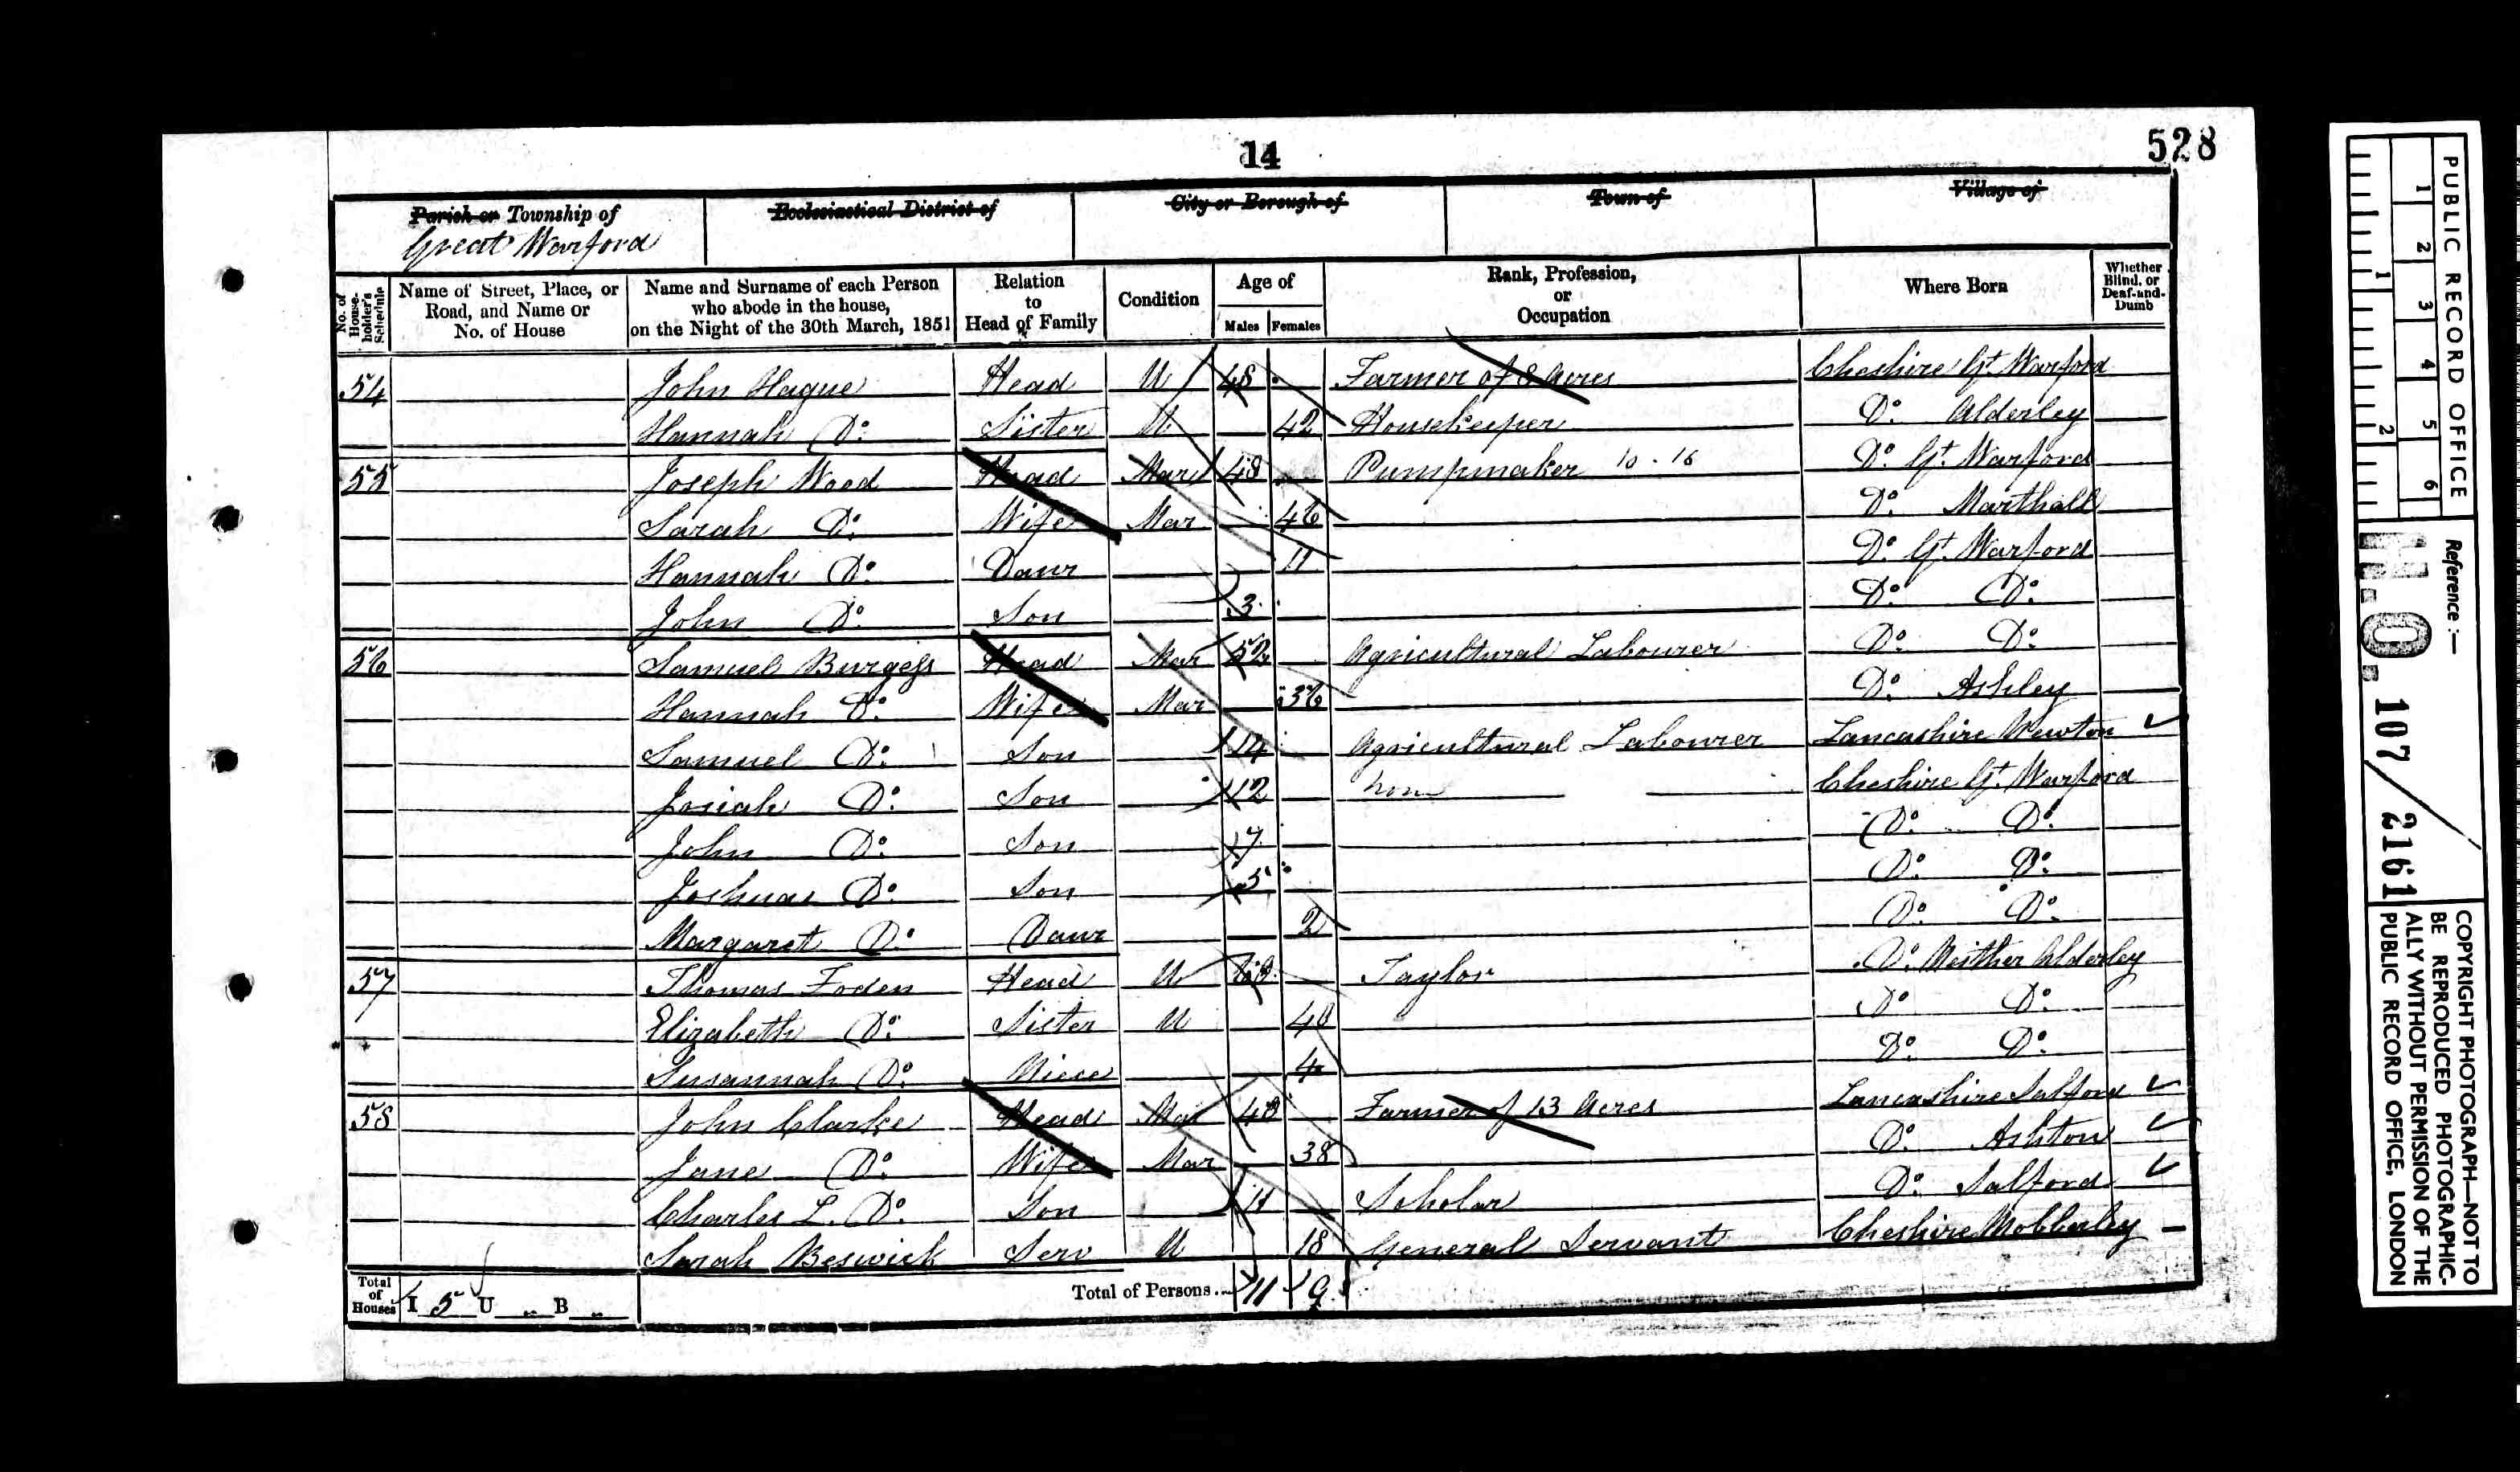 14
528
Parish or Township of
Great Warford
Ecclesiastical District of
City or Borough of
Town of
Village of
No. of House-holder's Schedule
Name of Street, Place, or Road, and Name or No. of House
Name and Surname of each Person who abode in the house, on the Night of the 30th March, 1851
Relation to Head of Family
Condition
Age of
Males
Females
Rank, Profession, or Occupation
Where Born
Whether Blind, or Deaf-and-Dumb
54 John Hague Head U 48 Farmer of 8 Acres Cheshire Gt. Warford
Hannah Do. Sister U 42 Housekeeper Do. Alderley
55 Joseph Wood Head Mar 48 Pumpmaker 10-16 Do. Gt. Warford
Sarah Do. Wife Mar 46 Do. Marthall
Hannah Do. Daur 11 Do. Gt. Warford
John Do. Son 3 Do. Do.
56 Samuel Burgess Head Mar 52 Agricultural Labourer Do. Do.
Hannah Do. Wife Mar 36 Do. Ashley
Samuel Do. Son 14 Agricultural Labourer Lancashire Newton
Josiah Do. Son 12 Cheshire Gt. Warford
John Do. Son 7 Do. Do.
Joshua Do. Son 5 Do. Do.
Margaret Do. Daur 2 Do. Do.
57 Thomas Foden Head U Taylor Do. Neither Alderley
Elizabeth Do. Sister U 40 Do. Do.
Susannah Do. Niece 4 Do. Do.
58 John Clarke Head Mar 40 Farmer of 13 Acres Lancashire Salford
Jane Do. Wife Mar 38 Do. Ashton
Charles L. Do. Son 11 Scholar Do. Salford
Sarah Beswick Serv U 18 General Servant Cheshire Mobberley
Total of Houses I 5 U B
Total of Persons 11 9
PUBLIC RECORD OFFICE
1 2 3 4 5 6
1 2
Reference:-
H.O. 107 / 2161
COPYRIGHT PHOTOGRAPH—NOT TO BE REPRODUCED PHOTOGRAPHIC-ALLY WITHOUT PERMISSION OF THE PUBLIC RECORD OFFICE, LONDON